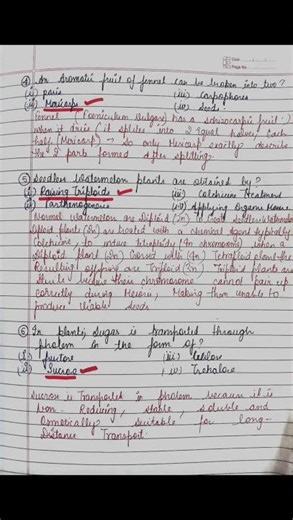 ④ An aromatic fruit of fennel can be broken into two?
(i) pairs (iii) Carpophores
(ii) Mericarp ✓ (iv) seeds.
Fennel (Foeniculum vulgare) has a schizocarpic fruit.
when it dries it splits into 2 equal halves, each
half (Mericarp) → so only Mericarp exactly describe
the 2 parts formed after splitting.
⑤ Seedless Watermelon plants are obtained by?
(i) Raising Triploids ✓ (iii) Colchicine Treatment
(ii) Parthenogenous (iv) Applying
Normal watermelon are Diploid (2n) to create seedless watermelon
Diploid plants (2n) are treated with a chemical agent typically
Colchicine, to induce tetraploidy (4n chromosome) when a
Diploid plant (2n) crossed with (4n) Tetraploid plant the
Resulting offspring are Triploid (3n) Triploid plants are
sterile because their chromosome cannot pair up
correctly during Meiosis, Making them unable to
produce viable seeds
⑥ In plants sugar is transported through
phloem in the form of?
(iii)
(ii) Sucrose ✓ (iv) Trehalose
Sucrose is Transported in phloem because it is
Non-Reducing, stable, soluble and
Osmotically suitable for long-
Distance Transport.